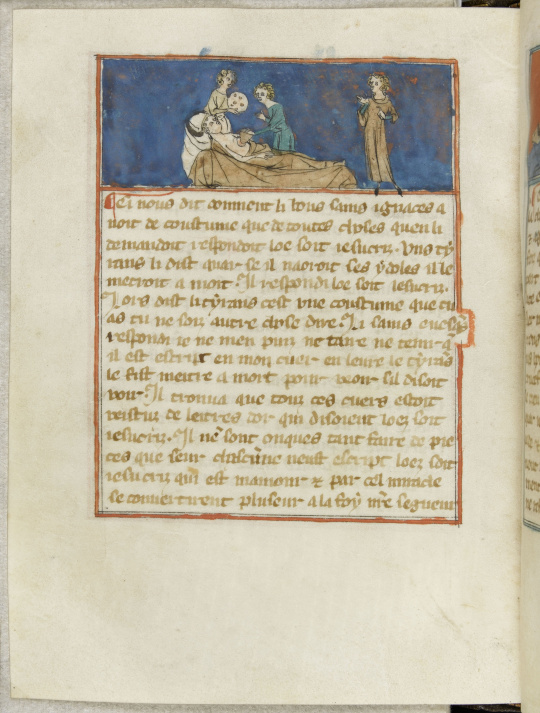 Ci nous dit comment li bons sains ignaces a
uoit de coustume que de toutes choses quen li
demandoit respondoit loe soit ihesucris. Uns ty
rans li dist que se il naoroit ses ydoles il le
metroit a mort. Il respondi loe soit ihesucris.
Lors dist li tyrans cest une coustume que tu
as tu ne sois autre chose dire. Li sains euesq
respondi ie ne men puis ne taire ne tenir q
il est escript en mon cuer en leure le tyrans
le fist mettre a mort pour ueoir sil disoit
uoir. Il trouua que tous ces cuers estoit
uestus de lettres dor qui disoient loez soit
ihesucris. Il nen sont onques tant faire de pie
ces que seur chascune neust escript loez soit
ihesucris qui est mamour & par cel miracle
se conuertirent pluseur a la foy nre segneur